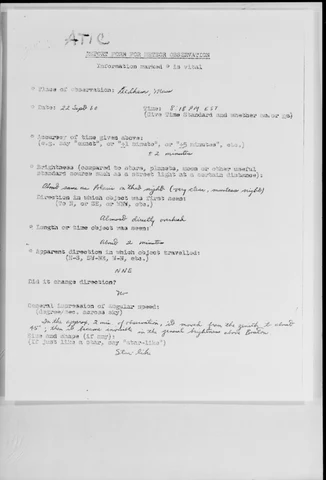 ATIC
REPORT FORM FOR METEOR OBSERVATION
Information marked * is vital
* Place of observation: Dedham, Mass
* Date: 22 Sept 60 Time: 8:18 PM EST
(Give Time Standard and whether AM or PM)
* Accuracy of time given above:
(e.g. say "exact", or "±1 minute", or "±5 minutes", etc.)
± 2 minutes
* Brightness (compared to stars, planets, moon or other useful
standard source such as a street light at a certain distance):
About same as on that night (very clear, moonless night)
Direction in which object was first seen:
(Fr S, or SE, or NNW, etc.)
Almost directly overhead
* Length of time object was seen:
About 2 minutes
* Apparent direction in which object travelled:
(N-S, SW-NE, W-E, etc.)
NNE
Did it change direction?
No
General impression of angular speed:
(degree/sec. across sky)
In the approx. 2 min of observation, it moved from the zenith to about
45°; then it became in the general brightness above Boston
Size and shape (if any):
(If just like a star, say "star-like")
Star like